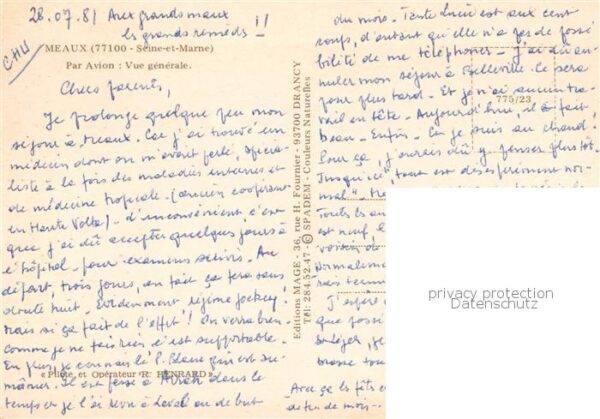 28.07.81 Aux grands maux
les grands remèdes !!
CHU
MEAUX (77100 - Seine-et-Marne)
Par Avion : Vue générale.
Chers parents,
Je prolonge quelque peu mon
séjour à Meaux. Car j'ai trouvé un
médecin dont on m'avait parlé, spécia-
liste à la fois des maladies internes et
de médecine tropicale (ancien coopérant
en Haute Volta). L'inconvénient, c'est
que j'ai dû accepter quelques jours à
l'hôpital - pour examens suivis. Au
départ, trois jours, en fait ça fera sans
doute huit. Evidemment régime jockey!
mais si ça fait de l'effet! On verra bien.
comme je ne fais rien c'est supportable.
En plus, je connais le P. Blanc qui est au-
mônier. Il est passé à dans le
temps et je l'ai revu à Laval au début
«Pilote et Opérateur R. HENRARD»
Editions MAGE - 36, rue H. Fournier - 93700 DRANCY
Tél: 284.52.47 © SPADEM Couleurs Naturelles
du mois. Tante Luci est aux cent
coups, d'autant qu'elle n'a pas de possi
bilité de me téléphoner - J'ai dû an-
nuler mon séjour à Belleville. Ce sera
pour plus tard. Et je n'ai aucun tra-
vail en tête. Aujourd'hui, il fait
beau - Enfin. Car je suis au chaud.
Pour ça, j'aurais dû y penser plus tôt.
Jusqu'ici tout est désespérément nor-
mal"
775/23
Tous les
est neuf,
voisin de
normalement
J'espère
que possi
St Léger, je
Avec les fêtes
de fin de mois -
privacy protection
Datenschutz